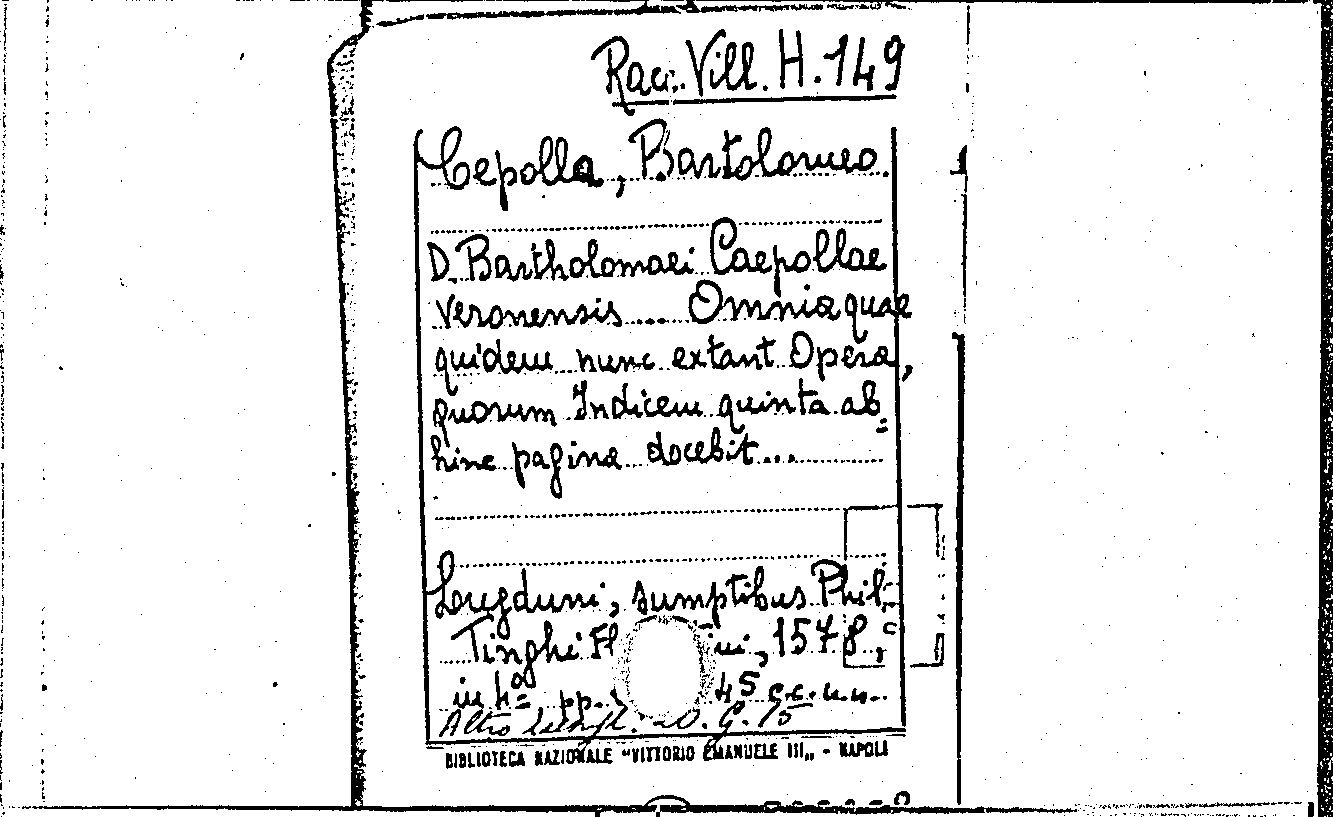 Racc. Vill. H. 149
Cepolla, Bartolomeo.
D. Bartholomaei Caepollae
Veronensis ... Omnia quae
quidem nunc extant Opera,
quorum Indicem quinta ab=
hinc pagina docebit...
Lugduni, sumptibus Phil.
Tinghi Fl tini, 1578,
in 4º pp. 45 c.c. n.n.
Altro D. G. 15
BIBLIOTECA NAZIONALE "VITTORIO EMANUELE III„ - NAPOLI